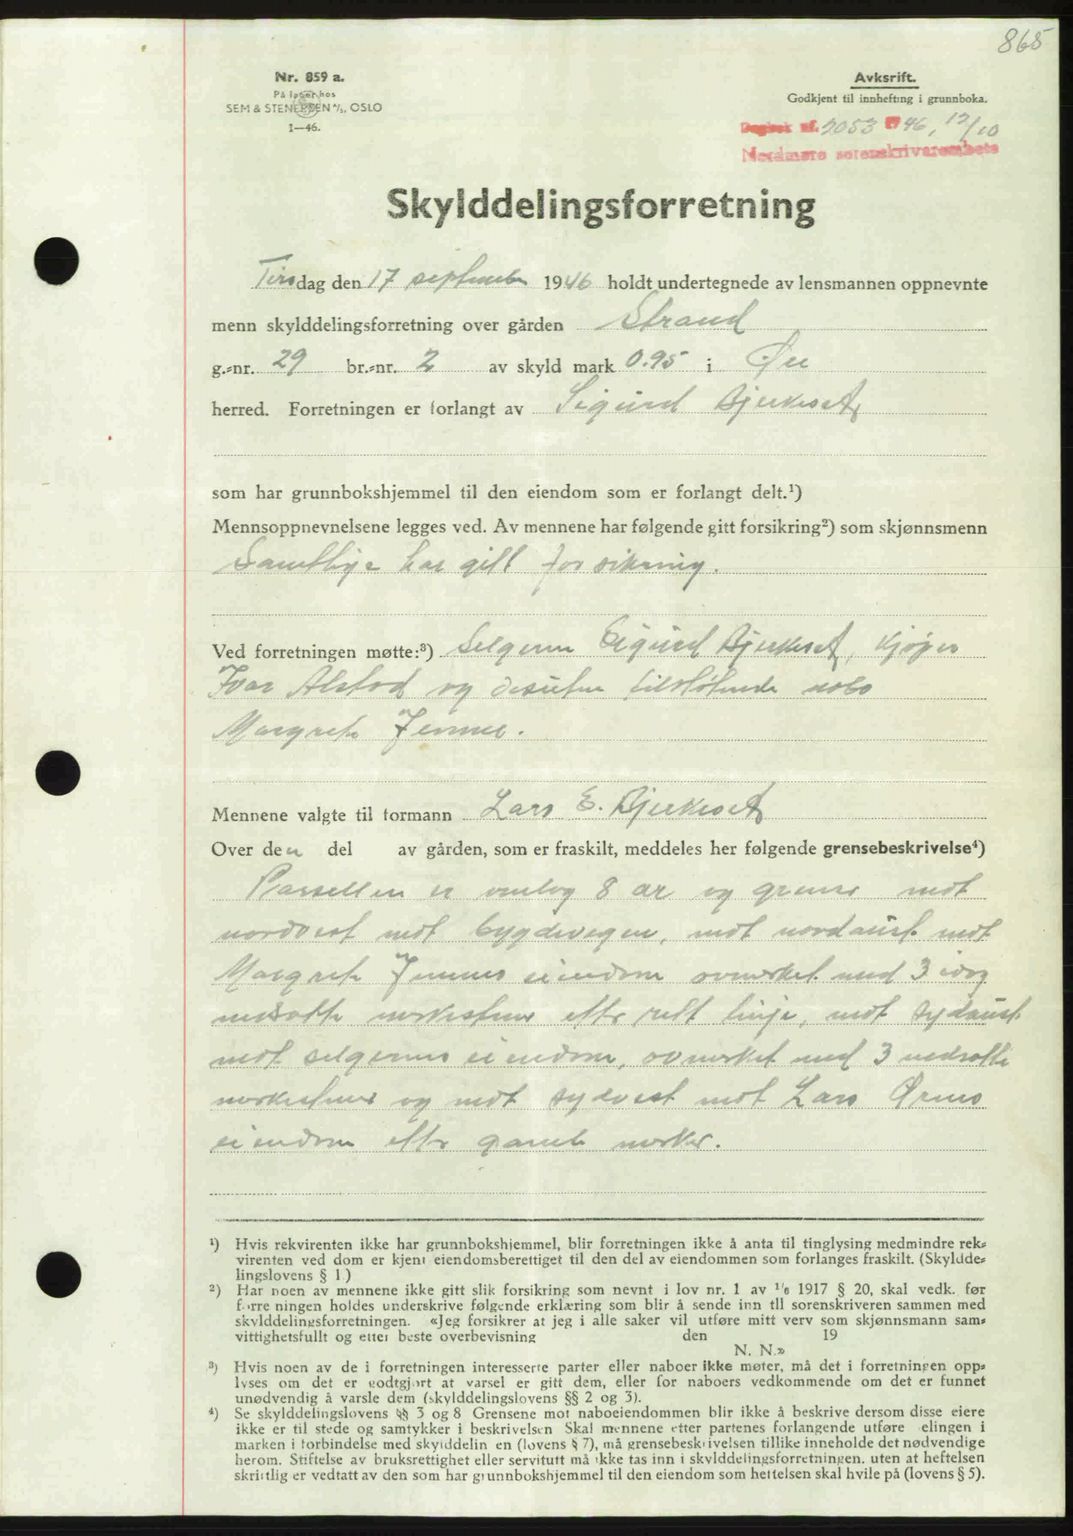 865
Nr. 859 a.
På lager hos
SEM & STENERSEN A/S, OSLO
1—46.
Avksrift.
Godkjent til innhefting i grunnboka.
Dagbok nr. 2053 19 46, 12/10
Nordmøre sorenskriverembete
Skylddelingsforretning
Tirsdag den 17 september 1946 holdt undertegnede av lensmannen oppnevnte
menn skylddelingsforretning over gården Strand
g.-nr. 29 br.-nr. 2 av skyld mark 0.95 i Øre
herred. Forretningen er forlangt av Sigurd Bjerkeset,
som har grunnbokshjemmel til den eiendom som er forlangt delt.¹)
Mennsoppnevnelsene legges ved. Av mennene har følgende gitt forsikring²) som skjønnsmenn
Samtlige har gitt forsikring.
Ved forretningen møtte:³) Selgeren Sigurd Bjerkeset, kjøper
Ivar Alstad og desuten tilstøtende nabo
Margrete
Mennene valgte til formann Lars E. Bjerkeset
Over den del av gården, som er fraskilt, meddeles her følgende grensebeskrivelse⁴)
Parsellen er omlag 8 ar og grenser mot
nordvest mot bygdevegen, mot nordaust mot
Margrete eiendom avmerket med 3 idag
nedsatte merkestener etter rett linje, mot sydaust
mot selgerens eiendom, avmerket med 3 nedsatte
merkestener og mot sydvest mot Lars Ørens
eiendom etter gamle merker.
¹) Hvis rekvirenten ikke har grunnbokshjemmel, blir forretningen ikke å anta til tinglysing medmindre rek-
virenten ved dom er kjent eiendomsberettiget til den del av eiendommen som forlanges fraskilt. (Skyldde-
lingslovens § 1)
²) Har noen av mennene ikke gitt slik forsikring som nevnt i lov nr. 1 av 1/6 1917 § 20, skal vedk. før
forretningen holdes underskrive følgende erklæring som blir å sende inn til sorenskriveren sammen med
skylddelingsforretningen. «Jeg forsikrer at jeg i alle saker vil utføre mitt verv som skjønnsmann sam-
vittighetsfullt og etter beste overbevisning den 19
N. N.»
³) Hvis noen av de i forretningen interesserte parter eller naboer ikke møter, må det i forretningen opp-
lyses om det er godtgjort at varsel er gitt dem, eller for naboers vedkommende om det er funnet
unødvendig å varsle dem (skylddelingslovens §§ 2 og 3).
⁴) Se skylddelingslovens §§ 3 og 8 Grensene mot naboeiendommen blir ikke å beskrive dersom disse eiere
ikke er til stede og samtykker i beskrivelsen Skal mennene etter partenes forlangende utføre delingen i
marken i forbindelse med skylddelingen (lovens § 7), må grensebeskrivelsen tillike inneholde det nødvendige
herom. Stiftelse av bruksrettighet eller servitutt må ikke tas inn i skylddelingsforretningen, uten at heftelsen
skriftlig er vedtatt av den som har grunnbokshjemmel til den eiendom som heftelsen skal hvile på (lovens § 5).